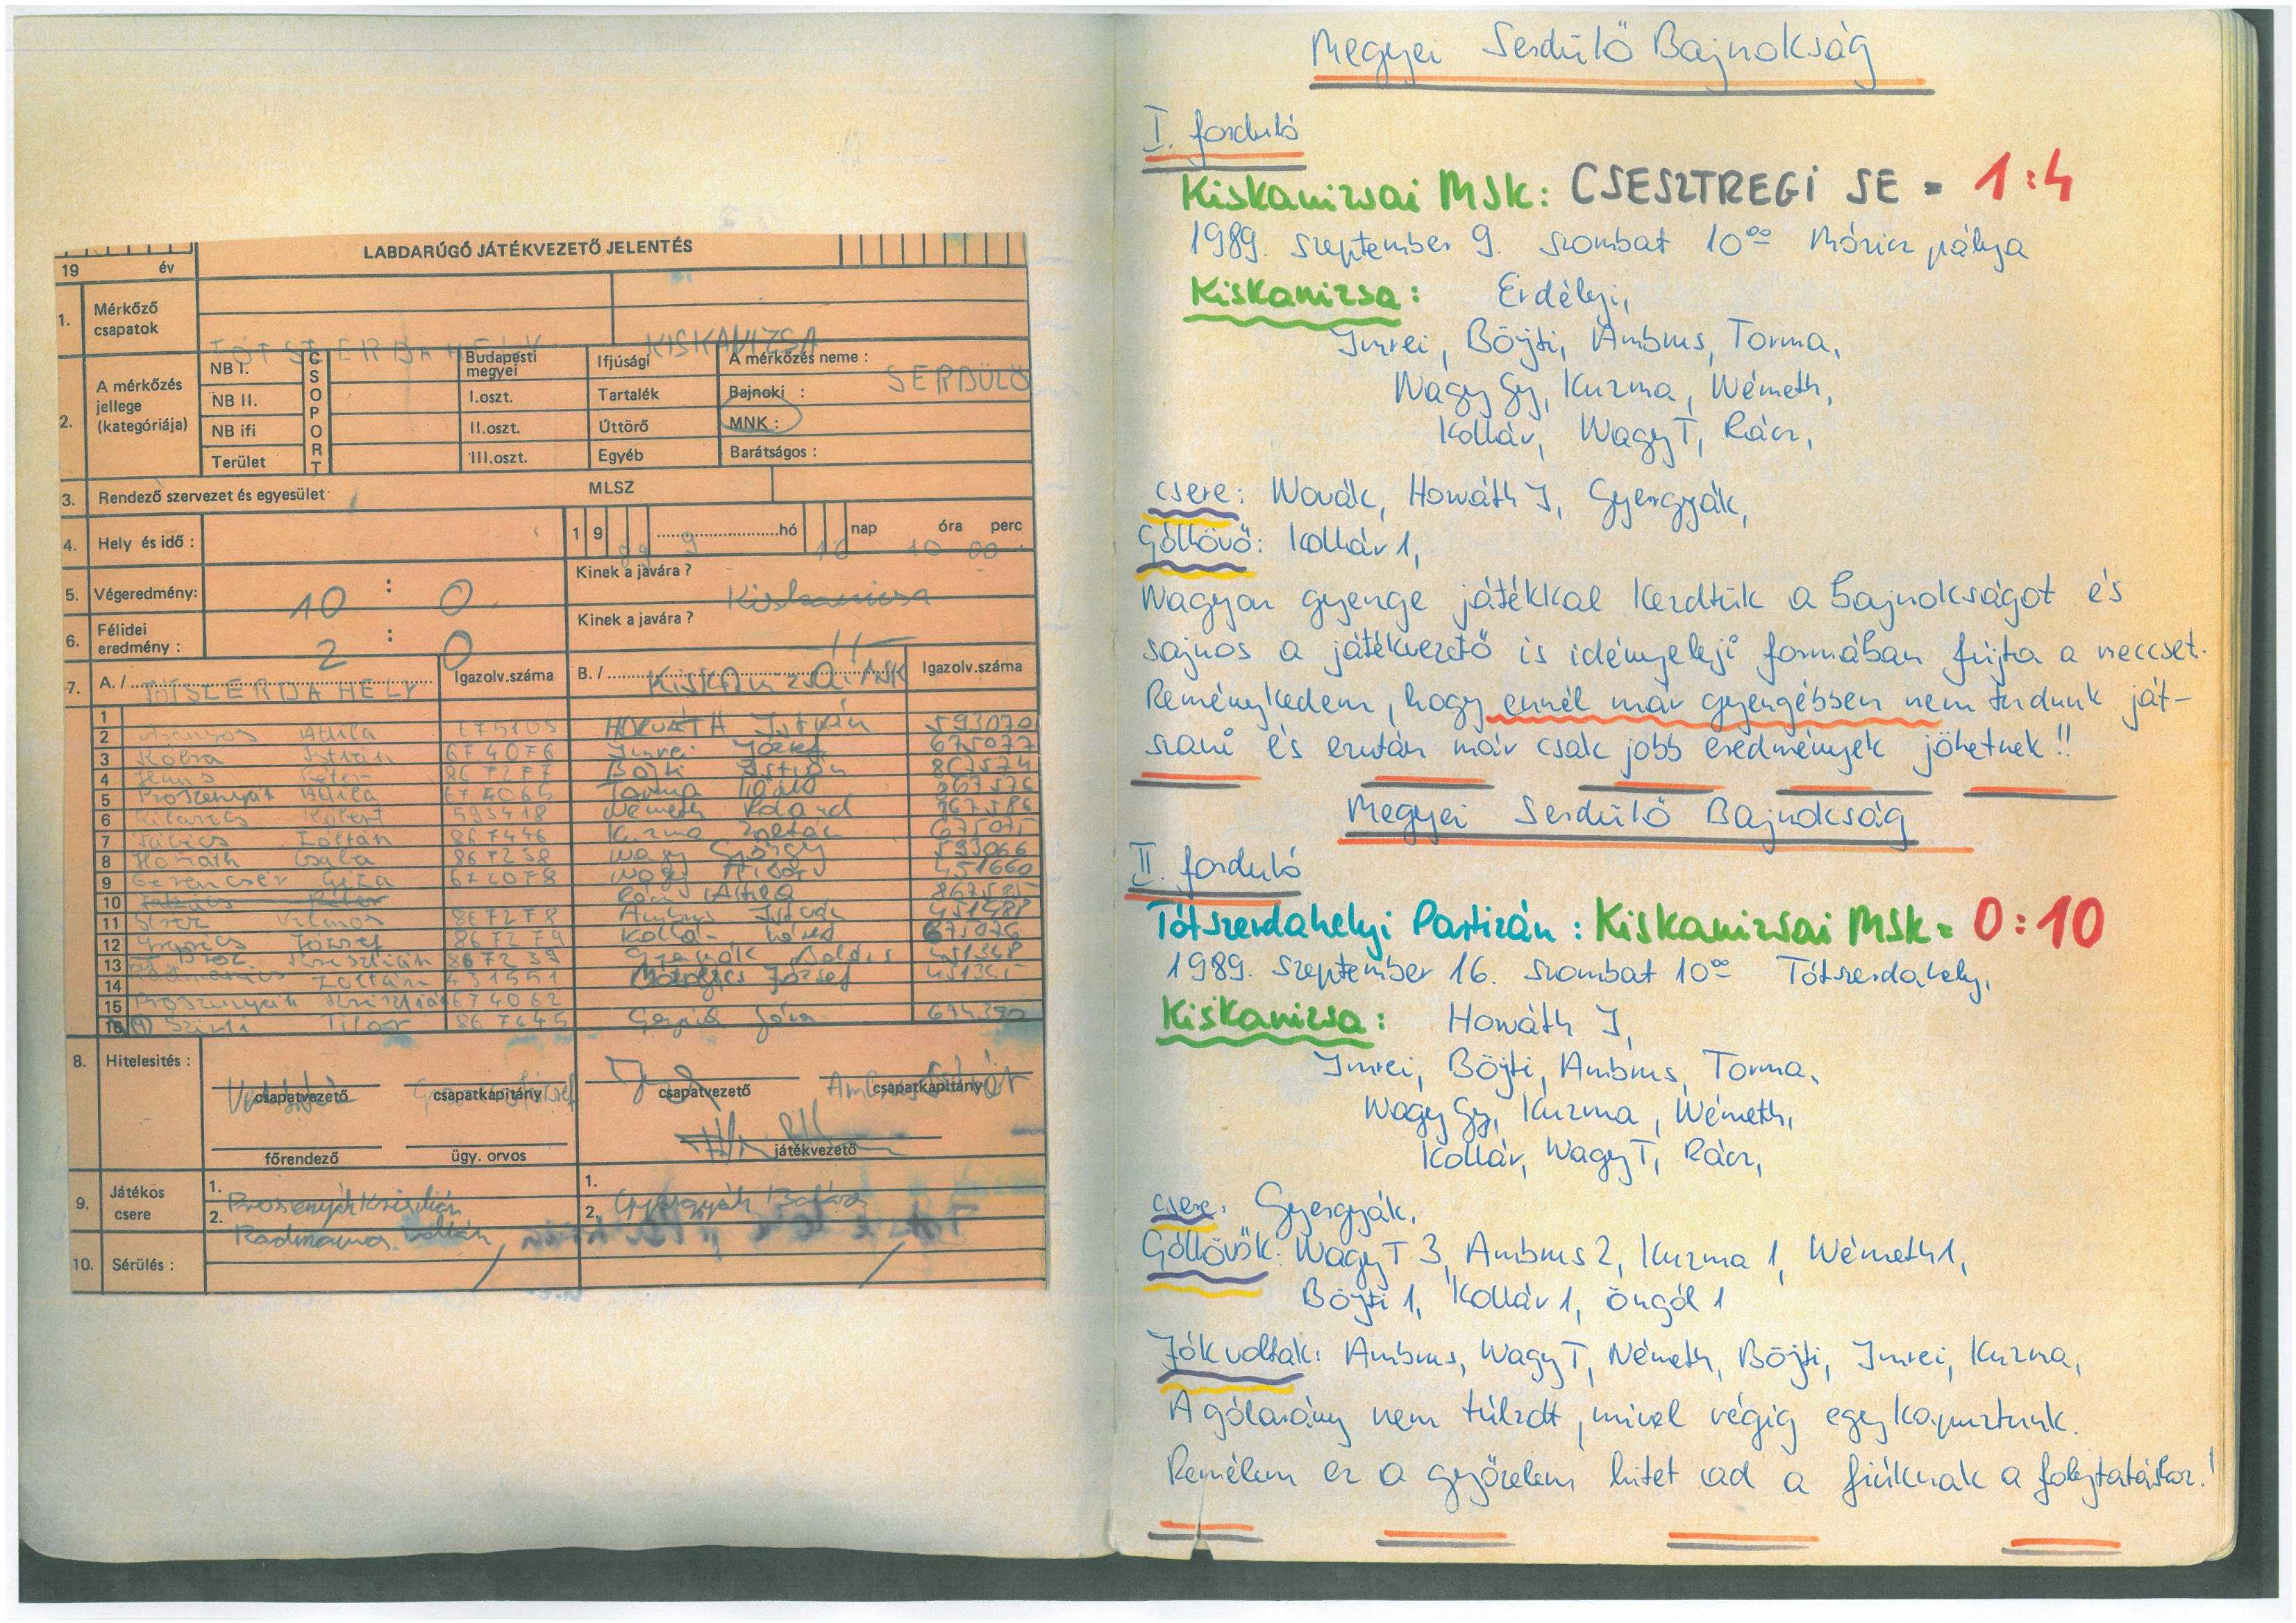 LABDARÚGÓ JÁTÉKVEZETŐ JELENTÉS
19 év
1. Mérkőző csapatok
TÓTSZERDAHELY KISKANIZSA
2. A mérkőzés jellege (kategóriája)
CSOPORT
NB I. Budapesti megyei Ifjúsági A mérkőzés neme : SERDÜLŐ
NB II. I.oszt. Tartalék Bajnoki :
NB ifi II.oszt. Úttörő MNK :
Terület III.oszt. Egyéb Barátságos :
3. Rendező szervezet és egyesület MLSZ
4. Hely és idő : 19 89 9 hó 16 nap 10 óra 00 perc
5. Végeredmény: 10 : 0 Kinek a javára ? Kiskanizsa
6. Félidei eredmény : 2 : 0 Kinek a javára ? -11-
7. A./ TÓTSZERDAHELY Igazolv.száma B./ Kiskanizsai MSK Igazolv.száma
1 Attila HORVÁTH István 593070
2 Kóbra István 674076 Imrei József 675077
3 Péter 867277 Böjti István 867574
4 Proszenyák Attila 674065 Torma 867576
5 593418 Németh Roland 867586
6 Zoltán 867446 Kuzma Zoltán 675075
7 Horváth Csaba 867238 Nagy György 593066
8 Gerencsér Géza 672078 Nagy Tibor 451660
9 Rácz Attila
10 Vilmos 867278 Ambrus István 451488
11 József 867274 Kollár 675076
12 Krisztián 867237 Gyergyák Balázs 451348
13 Radmanovics Zoltán 431551 József
14 Proszenyák Krisztián 674062
15 Tibor 867445 Géza 674390
16
8. Hitelesités :
csapatvezető csapatkapitány csapatvezető csapatkapitány
főrendező ügy. orvos játékvezető
9. Játékos csere 1. Prosenyák Krisztián 1. Gyergyák Balázs
2. Radmanovics Zoltán 2.
10. Sérülés :
Megyei Serdülő Bajnokság
I. forduló
Kiskanizsai MSK: CSESZTREGI SE = 1:4
1989. szeptember 9. szombat 10⁰⁰ Móricz pálya
Kiskanizsa: Erdélyi,
Imrei, Böjti, Ambrus, Torma,
Nagy Gy, Kuzma, Németh,
Kollár, Nagy T, Rácz,
csere: Novák, Horváth I, Gyergyák,
Góllövő: Kollár 1,
Nagyon gyenge játékkal kezdtük a bajnokságot és
sajnos a játékvezető is idényeleji formában fújta a meccset.
Reménykedem, hogy ennél már gyengébben nem tudunk ját-
szani és ezután már csak jobb eredmények jöhetnek!!
Megyei Serdülő Bajnokság
II. forduló
Tótszerdahelyi Partizán : Kiskanizsai MSK = 0:10
1989. szeptember 16. szombat 10⁰⁰ Tótszerdahely,
Kiskanizsa: Horváth I,
Imrei, Böjti, Ambrus, Torma,
Nagy Gy, Kuzma, Németh,
Kollár, Nagy T, Rácz,
csere: Gyergyák,
Góllövők: Nagy T 3, Ambrus 2, Kuzma 1, Németh 1,
Böjti 1, Kollár 1, öngól 1
Jók voltak: Ambrus, Nagy T, Németh, Böjti, Imrei, Kuzma,
A gólarány nem túlzott, mivel végig egykapuztunk.
Remélem ez a győzelem hitet ad a fiúknak a folytatáshoz!